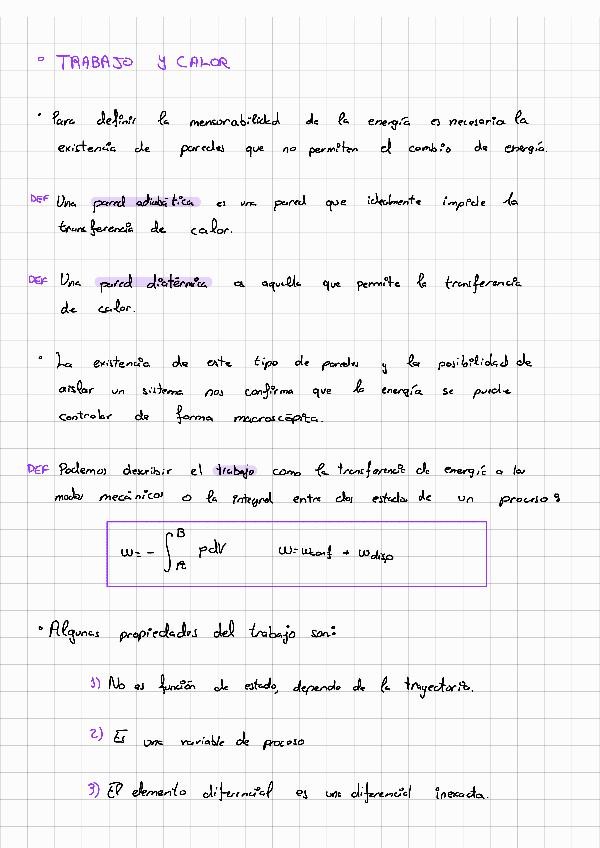 ° TRABAJO Y CALOR
· Para definir la mensurabilidad de la energía es necesaria la
existencia de paredes que no permiten el cambio de energía.
DEF Una pared adiabática es una pared que idealmente impide la
transferencia de calor.
DEF Una pared diatérmica es aquella que permite la transferencia
de calor.
· La existencia de este tipo de paredes y la posibilidad de
aislar un sistema nos confirma que la energía se puede
controlar de forma macroscópica.
DEF Podemos describir el trabajo como la transferencia de energía a los
modos mecánicos o la integral entre dos estados de un proceso:
W = - ∫_A^B pdV    W = W_conf + W_disp
· Algunas propiedades del trabajo son:
1) No es función de estado, depende de la trayectoria.
2) Es una variable de proceso
3) El elemento diferencial es una diferencial inexacta.